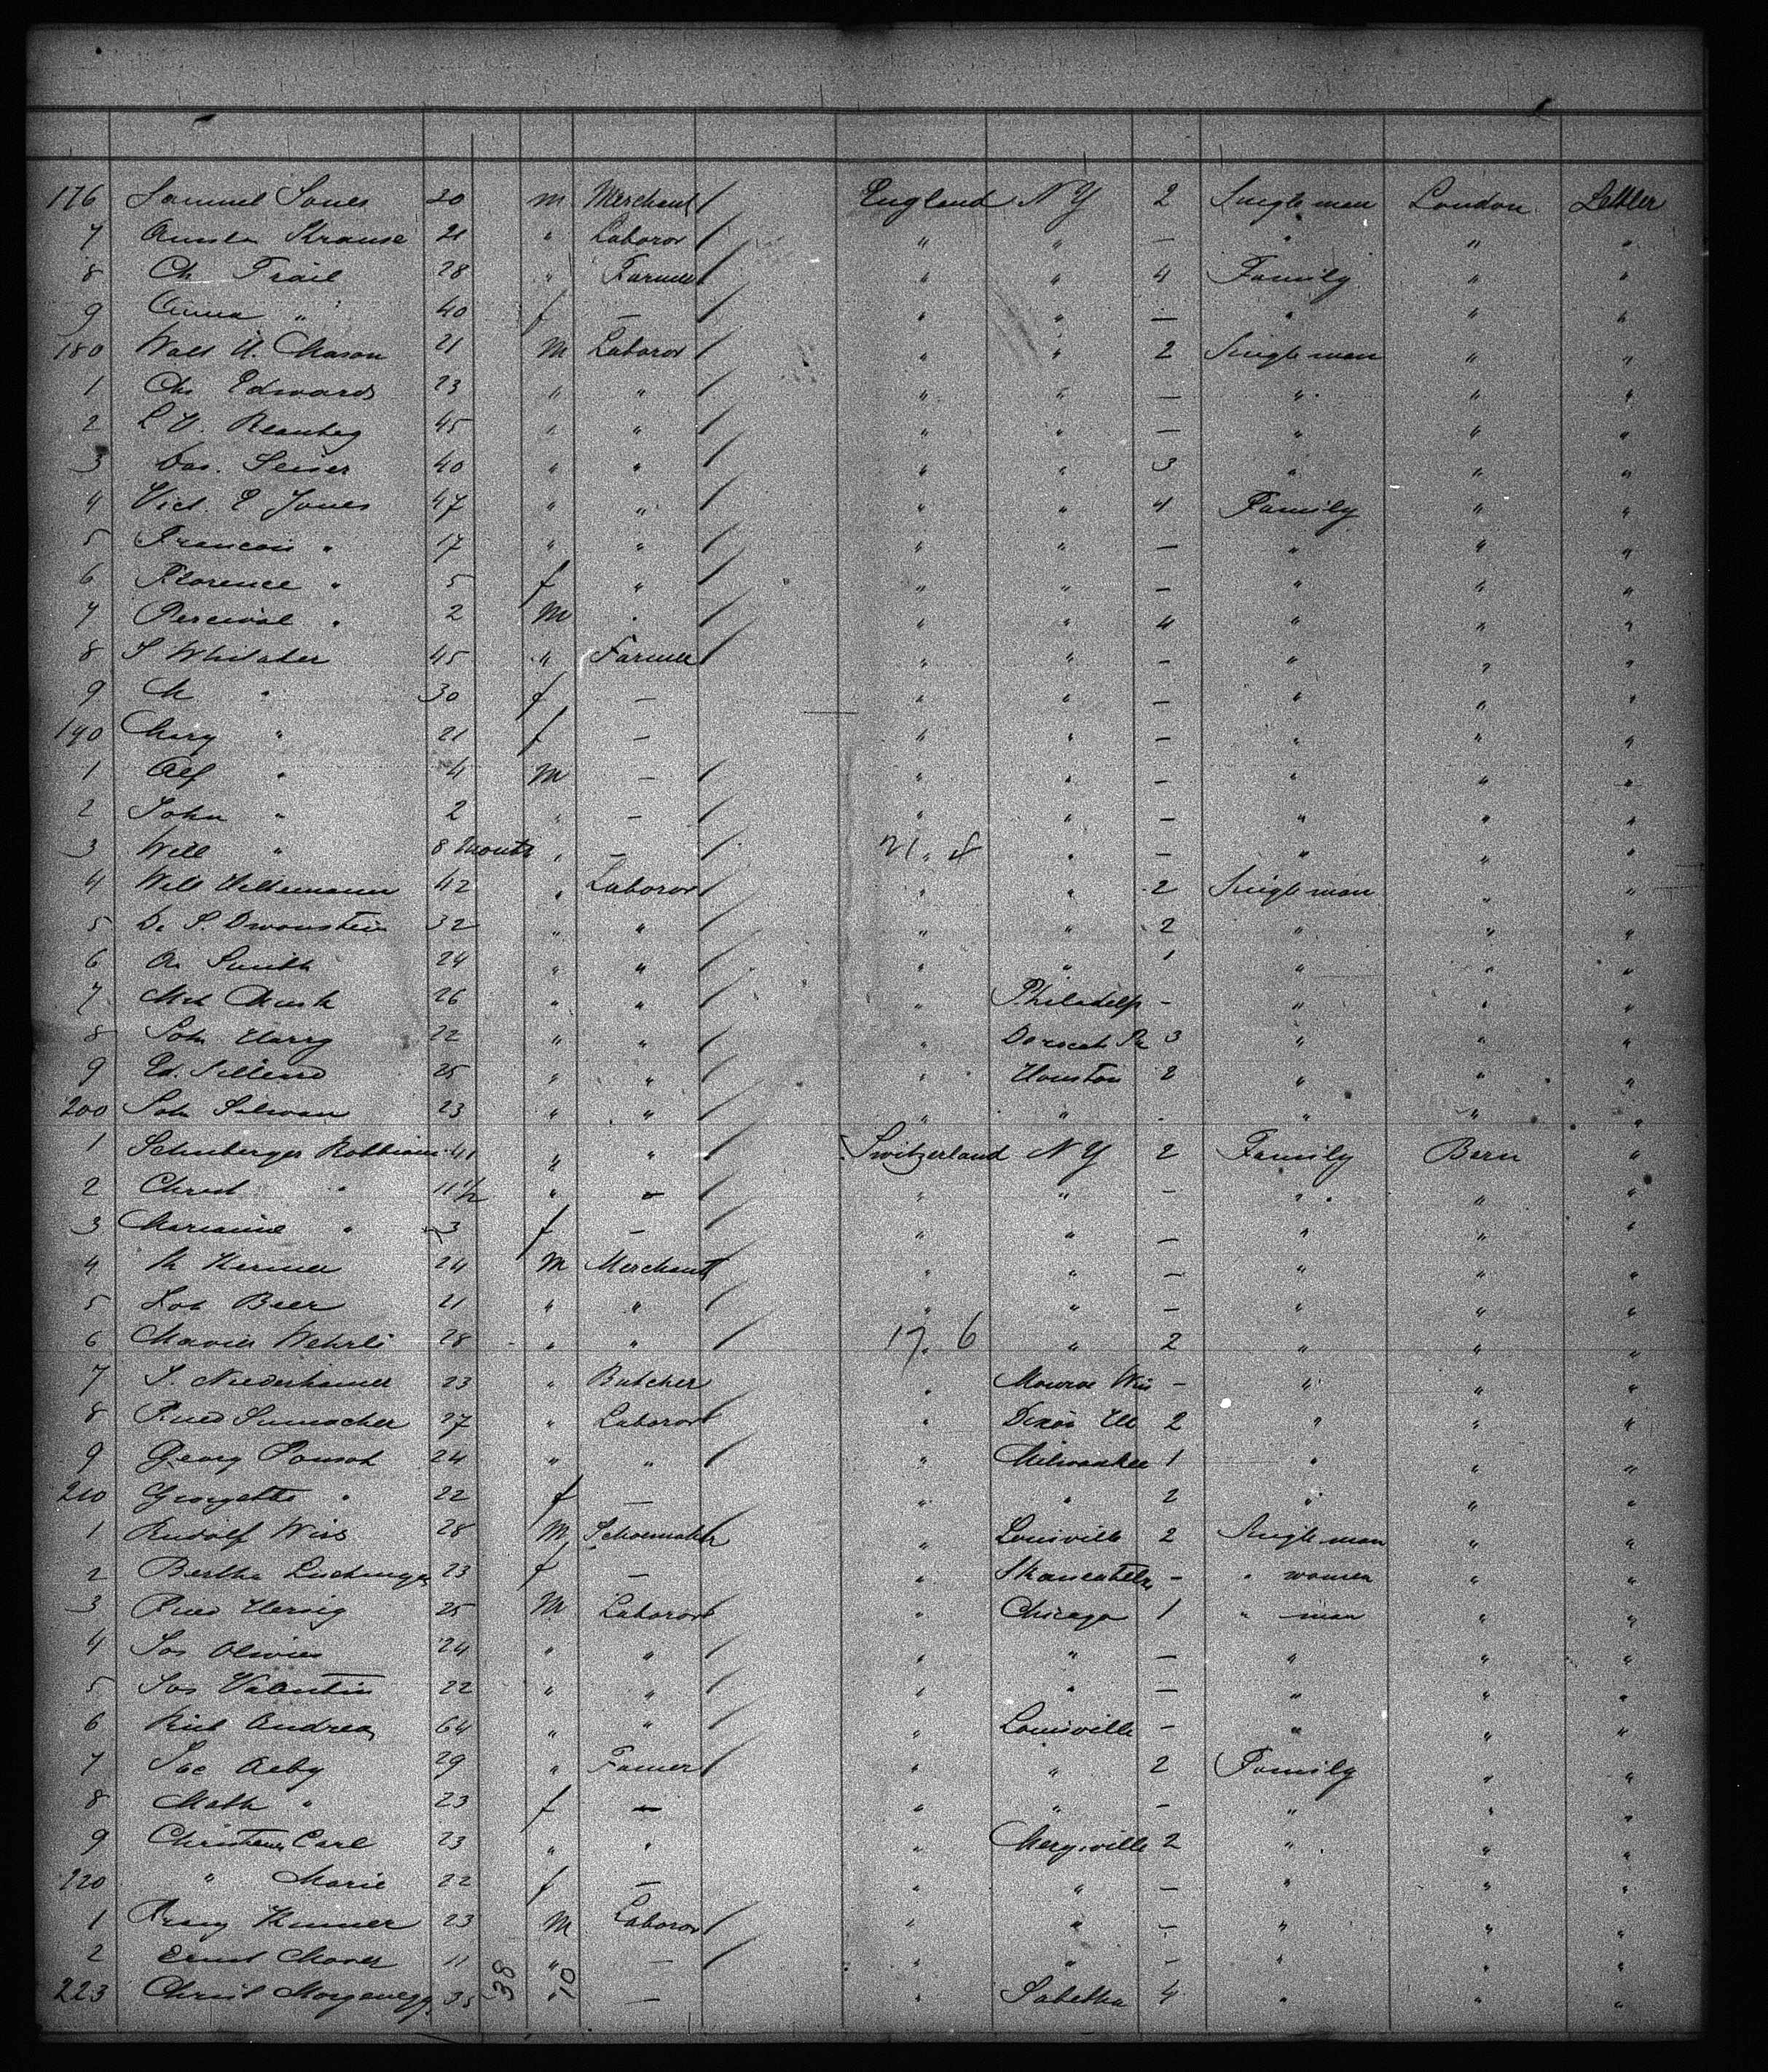 176 Samuel Jones 20 m Merchant / England NY 2 Single man London Settler
7 Krause 21 " Laboror / " " — " " "
8 Ch Trail 28 " Farmer / " " 4 Family " "
9 Anna " 40 f — / " " — " " "
180 Walt H. Mason 21 M Laboror / " " 2 Single man " "
1 Chs Edwards 23 " " / " " — " " "
2 L H. 45 " " / " " — " " "
3 40 " " / " " 3 " " "
4 Vict. E Jones 47 " " / " " 4 Family " "
5 Francois " 17 " " / " " — " " "
6 Florence " 5 f " / " " — " " "
7 Percival " 2 M " / " " 4 " " "
8 S Whitaker 45 " Farmer / " " — " " "
9 M " 30 f — " " — " " "
190 Mary " 21 f — " " — " " "
1 Alf " 4 M — / " " — " " "
2 John " 2 " — / " " — " " "
3 Will " 8 Months " — / 21. 8 " — " " "
4 Will 42 " Laboror / " " 2 Single man " "
5 De S. 32 " " / " " 2 " " "
6 A. Smith 24 " " / " " 1 " " "
7 26 " " / " Philadelp — " " "
8 Joh Harry 22 " " / " Pa 3 " " "
9 Ed. 25 " " / " Houston 2 " " "
200 Joh 23 " " / " " " " "
1 41 " " / Switzerland NY 2 Family Bern "
2 Christ " 11 1/2 " — / " " — " " "
3 Marianne " 3 f — / " " — " " "
4 24 M Merchant / " " — " " "
5 Beer 21 " " / " " — " " "
6 Wehrli 28 " " / 17. 6 " 2 " " "
7 23 " Butcher " Monroe Wis — " " "
8 Rued Sumacher 27 " Laboror / " Dixon Ill 2 " " "
9 Georg 24 " " / " Milwaukee 1 " " "
210 Georgette " 22 f — " " 2 " " "
1 Rudolf Wiss 28 M Schoemaker / " Louisville 2 Single man " "
2 Bertha Luchinger 23 f — " — " women " "
3 Rued Herzig 25 M Laboror / " Chicago 1 " man " "
4 Jos Olivier 24 " " / " " — " " "
5 Jos Valentin 22 " " / " " — " " "
6 Andrea 64 " " / " Louisville — " " "
7 Jac Aeby 29 " Famer / " " 2 Family " "
8 Math " 23 f — " " — " " "
9 Carl 23 " " " Marysville 2 " " "
220 " Marie 22 f — " " — " " "
1 23 M Laboror / " " — " " "
2 Ernst 11 " — / " " — " " "
223 Christ Morgenegg 35 38 " 10 — " Sabetha 4 " " "